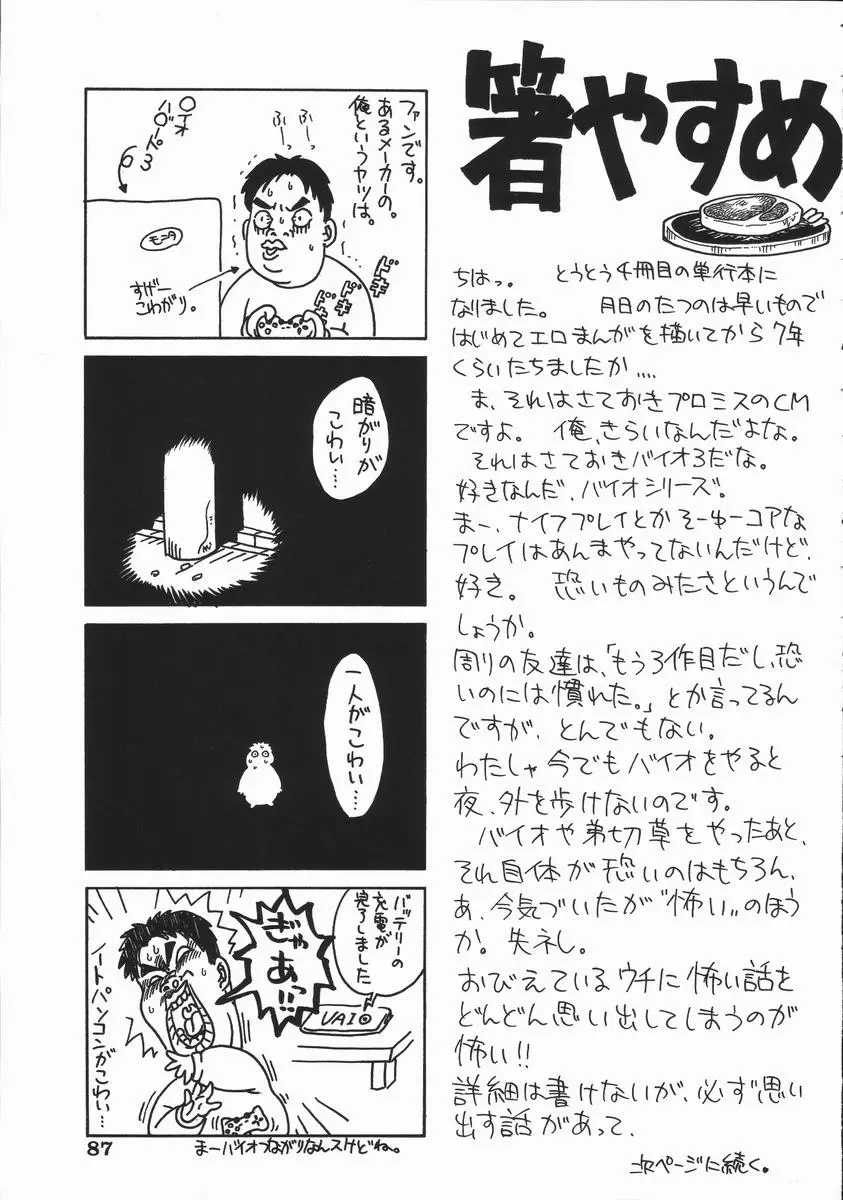 箸やすめ
ちはっ。 とうとう4冊目の単行本に
なりました。 月日のたつのは早いもので
はじめてエロまんがを描いてから7年
くらいたちましたか....
ま、それはさておきプロミスのCM
ですよ。 俺、きらいなんだよな。
それはさておきバイオ3だな。
好きなんだ、バイオシリーズ。
まー、ナイフプレイとかそーゆーコアな
プレイはあんまやってないんだけど、
好き。 恐いものみたさというんで
しょうか。
周りの友達は、「もう3作目だし、恐
いのには慣れた。」とか言ってるん
ですが、とんでもない。
わたしゃ今でもバイオをやると
夜、外を歩けないのです。
バイオや弟切草をやったあと、
それ自体が恐いのはもちろん、
あ、今気づいたが“怕い”のほう
か。失ネし。
おびえているウチに怖い話を
どんどん思い出してしまうのが
怖い!!
詳細は書けないが、必ず思い
出す話があって、
次ページに続く。
俺というヤツは。
あるメーカーの。
ファンです。
ふーっ
ふーっ
〇イオ
ハザード3
モニタ
すげー
こわがり。
ドキ
ドキ
ドキ
暗がりが
こわい…
一人がこわい…
バッテリーの
充電が
完了しました
ぎゃあっ!!
VAIO
ノートパソコンがこわい…
まーバイオつながりなんスけどね。
87